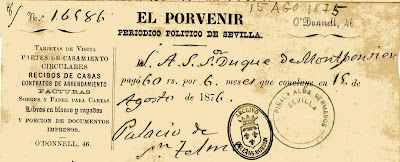 N.º 16586
15 AGO 1875
EL PORVENIR
PERIODICO POLITICO DE SEVILLA.
O'Donnell, 46
TARJETAS DE VISITA
PARTES DE CASAMIENTO
CIRCULARES
RECIBOS DE CASAS
CONTRATOS DE ARRENDAMIENTO
FACTURAS
SOBRES Y PAPEL PARA CARTAS
Libros en blanco y rayados
Y PORCION DE DOCUMENTOS
IMPRESOS.
O'DONNELL, 46.
S. A. S. Sr. Duque de Montpensier
pagó 60 rs. por 6 meses que concluye en 15 de
Agosto de 1876.
Palacio de
Sn Telmo
SEVILLA